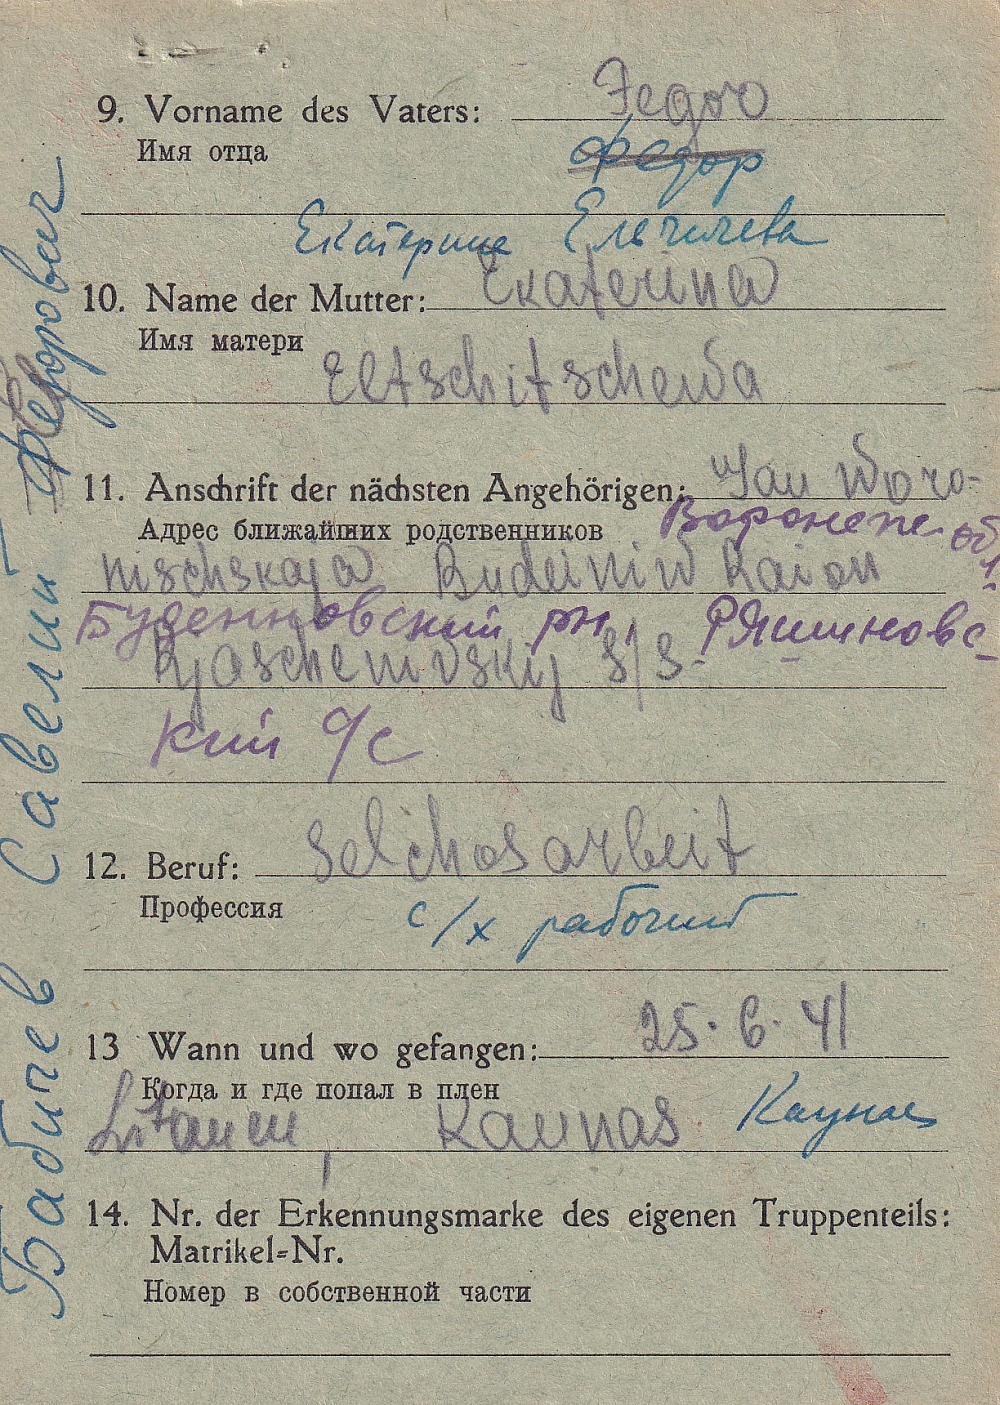 9. Vorname des Vaters: Fegor
Имя отца Федор
Екатерине Ельчичева
10. Name der Mutter: Ekaterina
Имя матери
Eltschitschewa
11. Anschrift der nächsten Angehörigen: Woro-
Адрес ближайших родственников Воронеже. обл.
nischskaja Budeiniw Raion
Буденновский рн. Ряшиновс-
Rjaschenowskij S/S-
кий с/с
12. Beruf: Selchosarbeit
Профессия с/х рабочий
13 Wann und wo gefangen: 25. 6. 41
Когда и где попал в плен
Litauen, Kaunas Каунас
14. Nr. der Erkennungsmarke des eigenen Truppenteils:
Matrikel-Nr.
Номер в собственной части
Бабичев Савелий Федорович